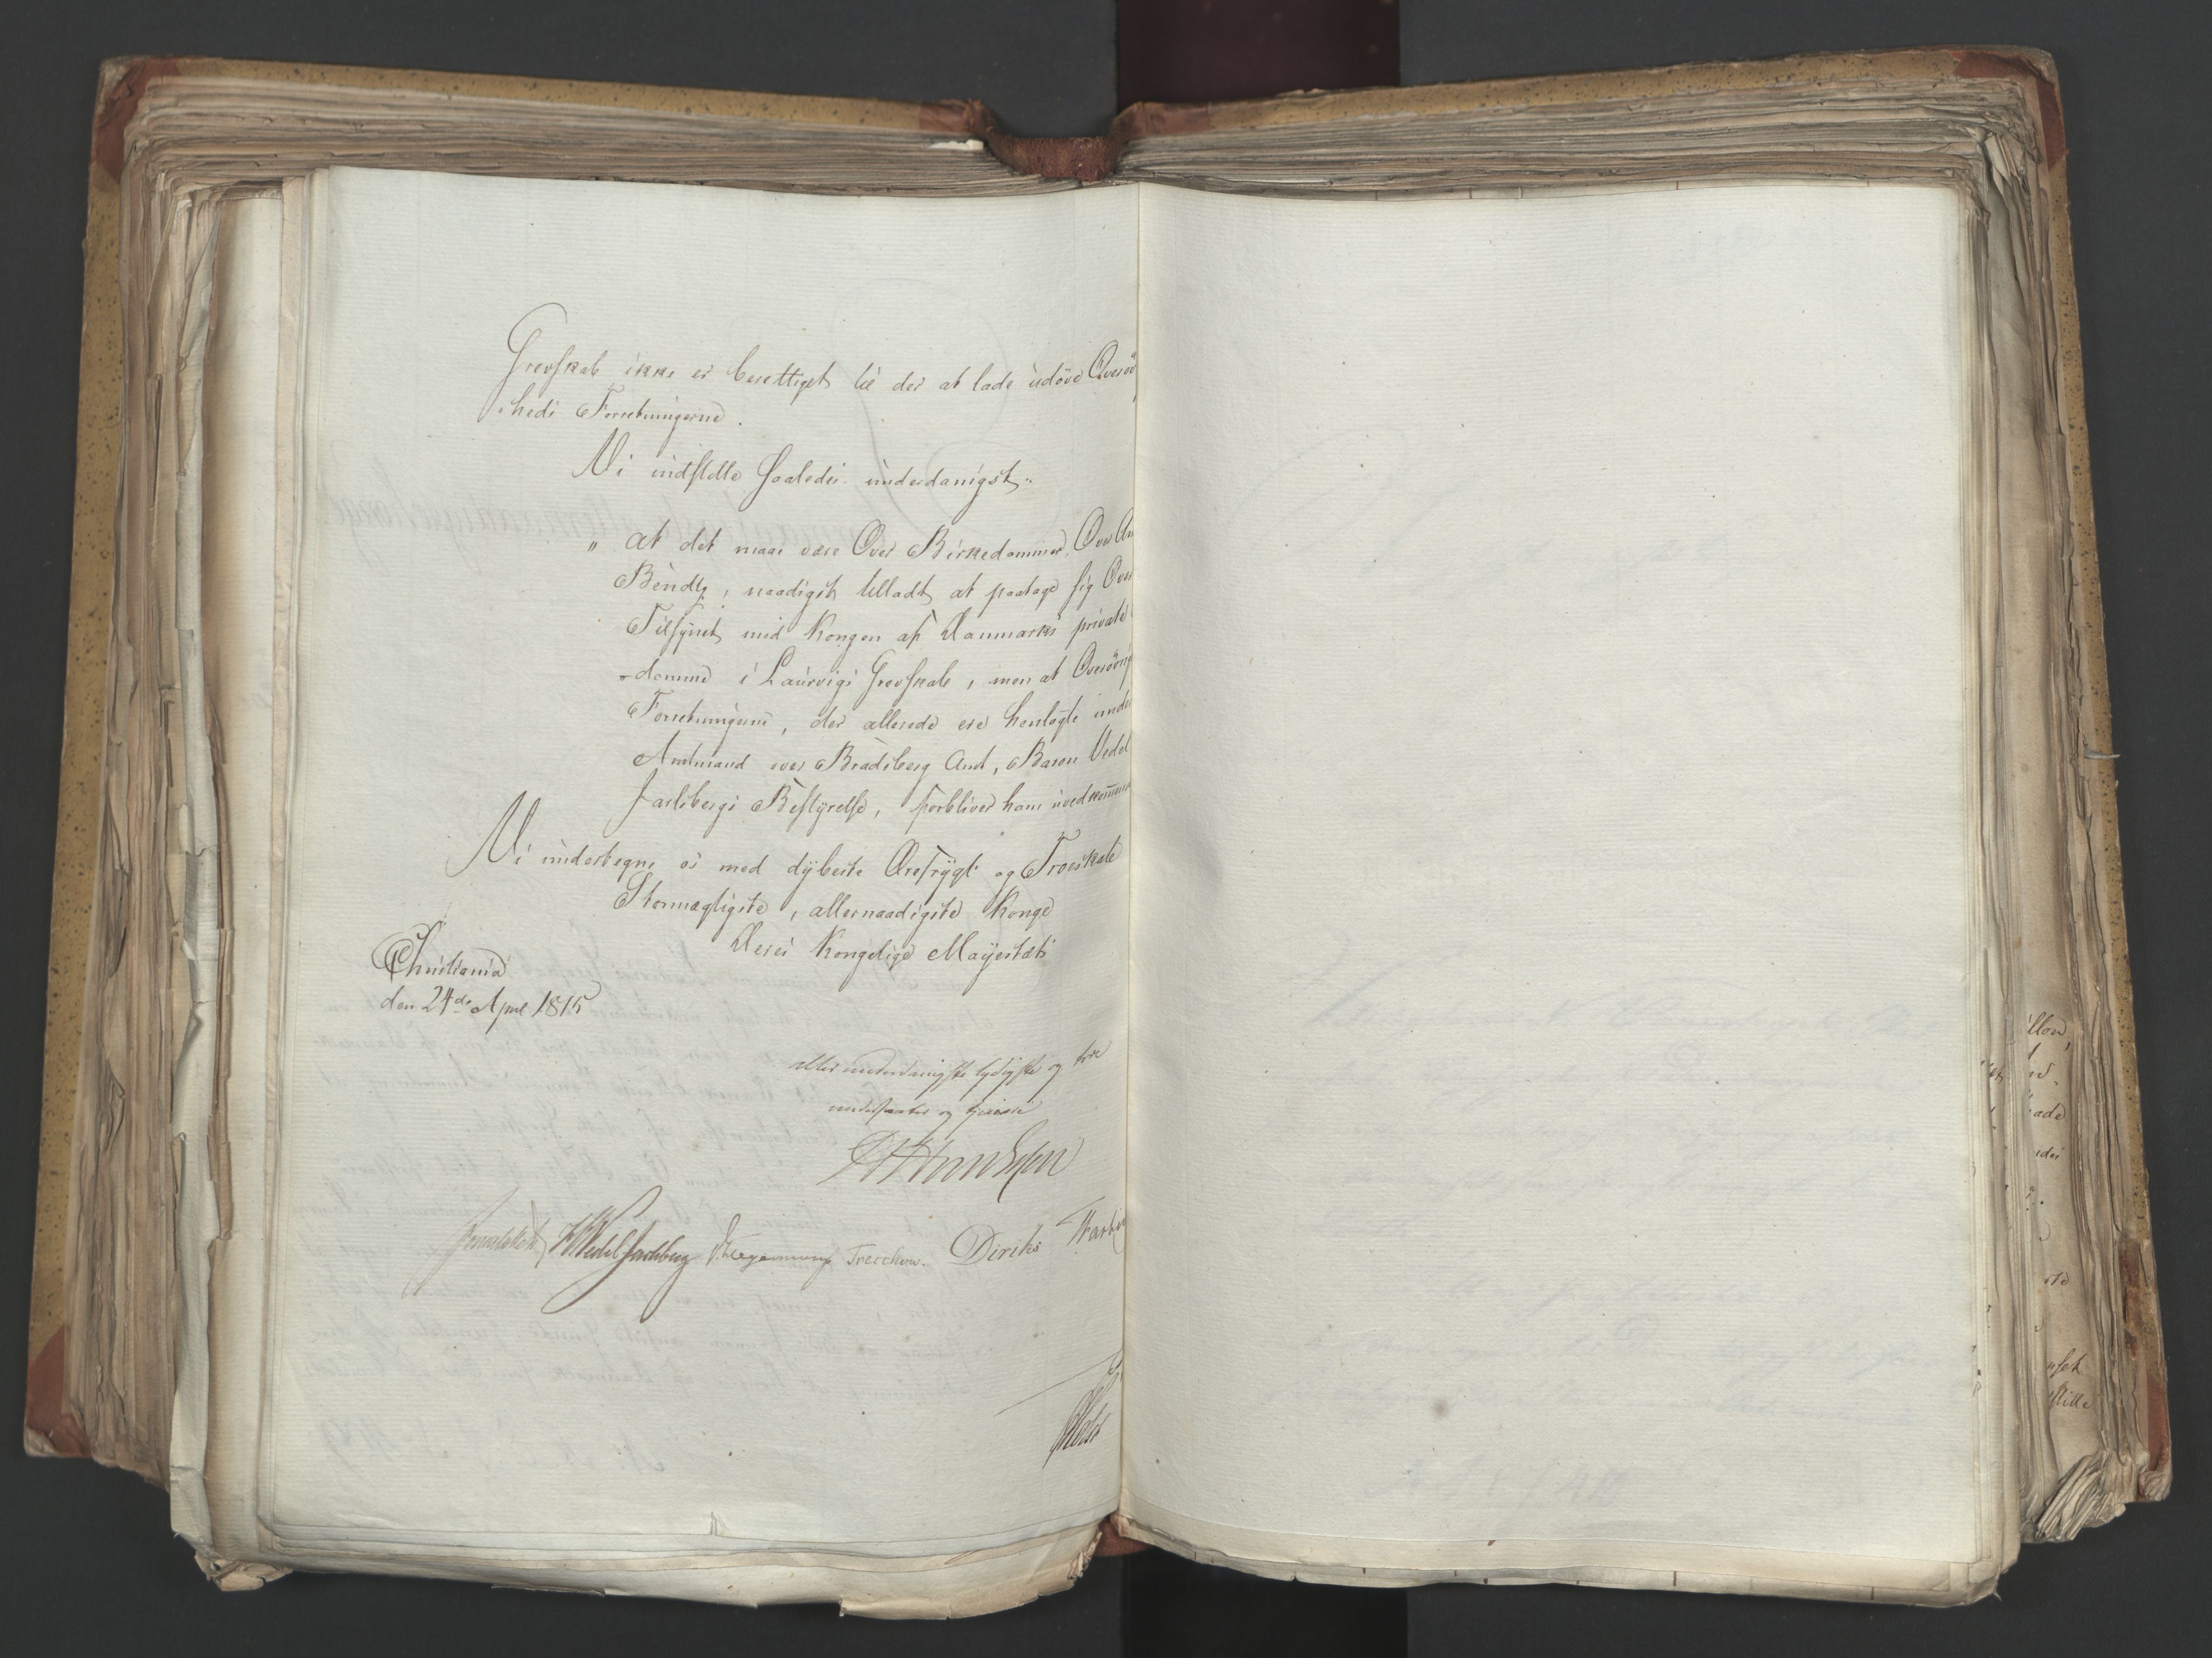 Grevskab ikke er berettiget til der at lade udöve Overöv
heds Forretningerne.
Vi indstille saaledes underdanigst:
" at det maae være Over Birkedommer, Over Au
Bendtz, naadigst tilladt at paatage sig Over
Tilsÿnet med Kongen af Danmarks private
-domme i Laurvigs Grevskab, men at Overövrig
Forretningerne, der allerede ere henlagte under
Amtmand over Bradsberg Amt, Baron Vedel
Jarlsbergs Bestÿrelse, forbliver ham uvedkommen
Vi undertegne os med dÿbeste Ærefrÿgt og Troeskab
Stormægtigste, allernaadigste Konge
Deres Kongelige Mayestæts
Christiania
den 24de April 1815
allerunderdanigste lydigste og troe
undersaatter og tjenere
Sommerhielm WedelJarlsberg Hegermann Treschow. Diriks
Holst